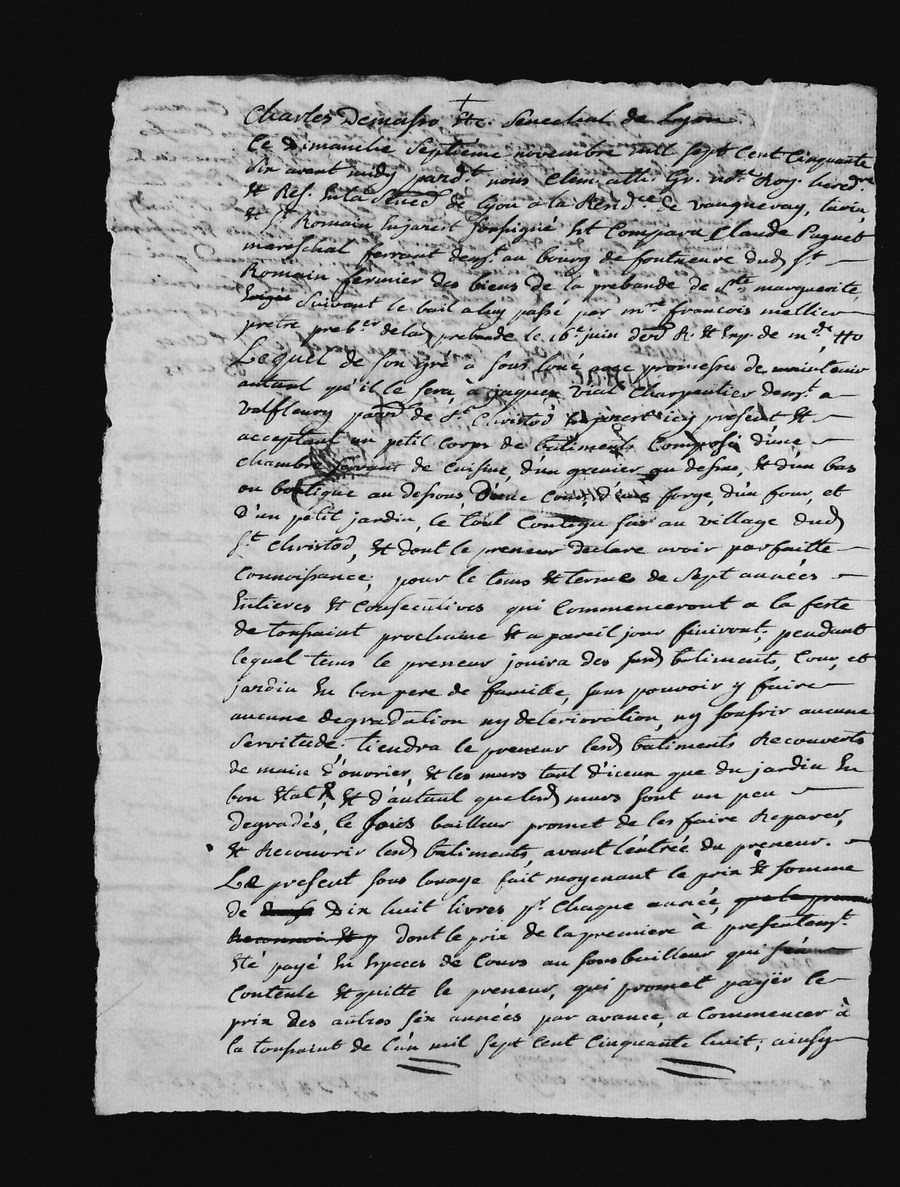 Charles Demasso, &c. Senechal de Lyon
Ce Dimanche Septieme novembre mil sept cent cinquante
Six avant midy pard.t nous Clem. att. gr. no.re Roy. hered.re
Et Res. En la Sened. de Lyon a la Resid.ce de vaugneray, 
Et S.t Romain Enjarest soussigné Est Comparu Claude Paguet
mareschal ferrant dem.t au bourg de fontneure dud S.t
Romain fermier des biens de la prebande de S.te marguerite
Erigée suivant le bail a luy passé par m.re francois mellier
pretre preb.er delad prebende le 16.e juin der.d R. Et Exp. de m.e
Lequel de son gré a sous loué avec promesses de maintenir
autant qu'il le sera, à jaques vial Charpentier dem.t a
valfleury parr.e de S.t Christod En jarest icy present Et
acceptant un petit corps de batiments Composé d'une
chambre servant de Cuisine, d'un grenier au dessus, Et d'un bas
ou boutique au dessous D'une Cour, d'une forge, d'un four, et
D'un petit jardin, le tout Contigu sis au village dud
S.t Christod, Et dont le preneur declare avoir parfaitte
Connoissance, pour le tems Et termes de Sept années
Entieres Et Consecutives qui Commenceront a la feste
de toussaint prochaine Et a pareil jour finiront, pendant
lequel tems le preneur jouira des susd batiments, Cour, et
jardin En bon pere de famille, sans pouvoir y faire
aucune degradation ny deterioration, ny soufrir aucune
Servitude; tiendra le preneur lesd batiments Recouverts
de main d'ouvrier, Et les murs tant d'iceux que du jardin En
bon Etat, Et d'autant que lesd murs sont un peu
degradés, le sous bailleur promet de les faire Reparer,
Et Recouvrir lesd batiments, avant l'entrée du preneur.
Le present sous louage fait moyenant le prix Et somme
de Dix huit livres p.r Chaque année, que le preneur
Reconnoit Et p dont le prix de la premiere à presentem.t
Eté payé En Especes de Cours au sousbailleur qui s'en
Contente Et quitte le preneur, qui promet payër le
prix des autres six années par avance, a Commencer à
la toussaint de l'an mil sept cent cinquante huit; ainsy